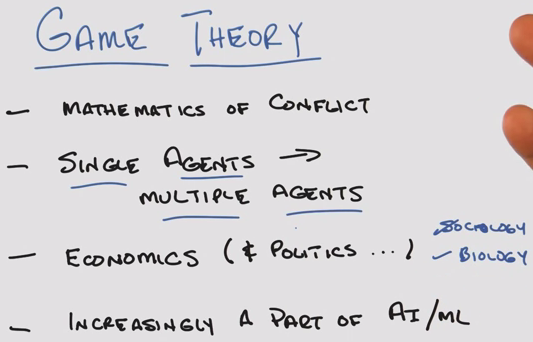 GAME THEORY
- MATHEMATICS OF CONFLICT
- SINGLE AGENTS →
MULTIPLE AGENTS
- ECONOMICS (& POLITICS ...)
SOCIOLOGY
BIOLOGY
- INCREASINGLY A PART OF AI/ML